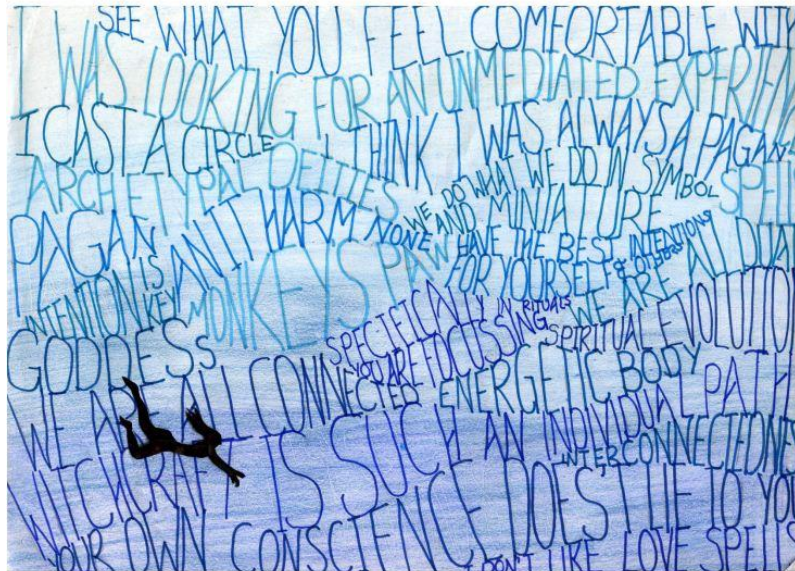 SEE WHAT YOU FEEL COMFORTABLE WITH
I WAS LOOKING FOR AN UNMEDIATED EXPERIENCE
I CAST A CIRCLE I THINK I WAS ALWAYS A PAGAN
ARCHETYPAL DEITIES
WE DO WHAT WE DO IN SYMBOL
AND MINIATURE
SPELLS
PAGAN AN IT HARM NONE
HAVE THE BEST INTENTIONS
FOR YOURSELF & OTHERS
WE ARE ALL DUAL
INTENTION IS
KEY
MONKEYS PAW
SPECIFICALLY IN RITUALS
YOU ARE FOCUSSING
SPIRITUAL EVOLUTION
GODDESS
WE ARE ALL CONNECTED ENERGETIC BODY
WITCHCRAFT IS SUCH AN INDIVIDUAL PATH
INTERCONNECTEDNES
YOUR OWN CONSCIENCE DOES TIE TO YOU
I DON'T LIKE LOVE SPELLS